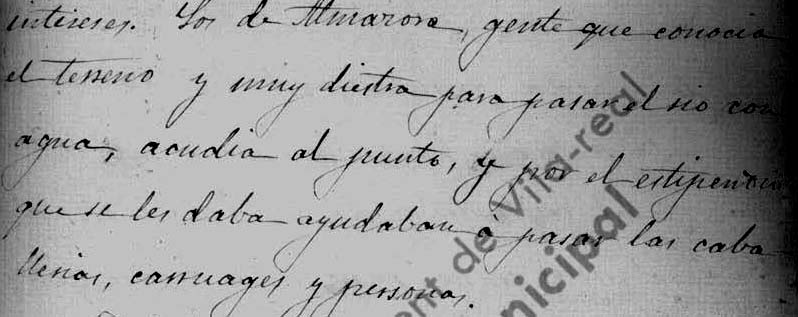 intereses. Los de Almazora, gente que conocia
el terreno y muy diestra para pasar el rio con
agua, acudia al punto, y por el estipendio
que se les daba ayudaban á pasar las caba
llerias, carruages y personas.
ent de Vila-real
nicipal